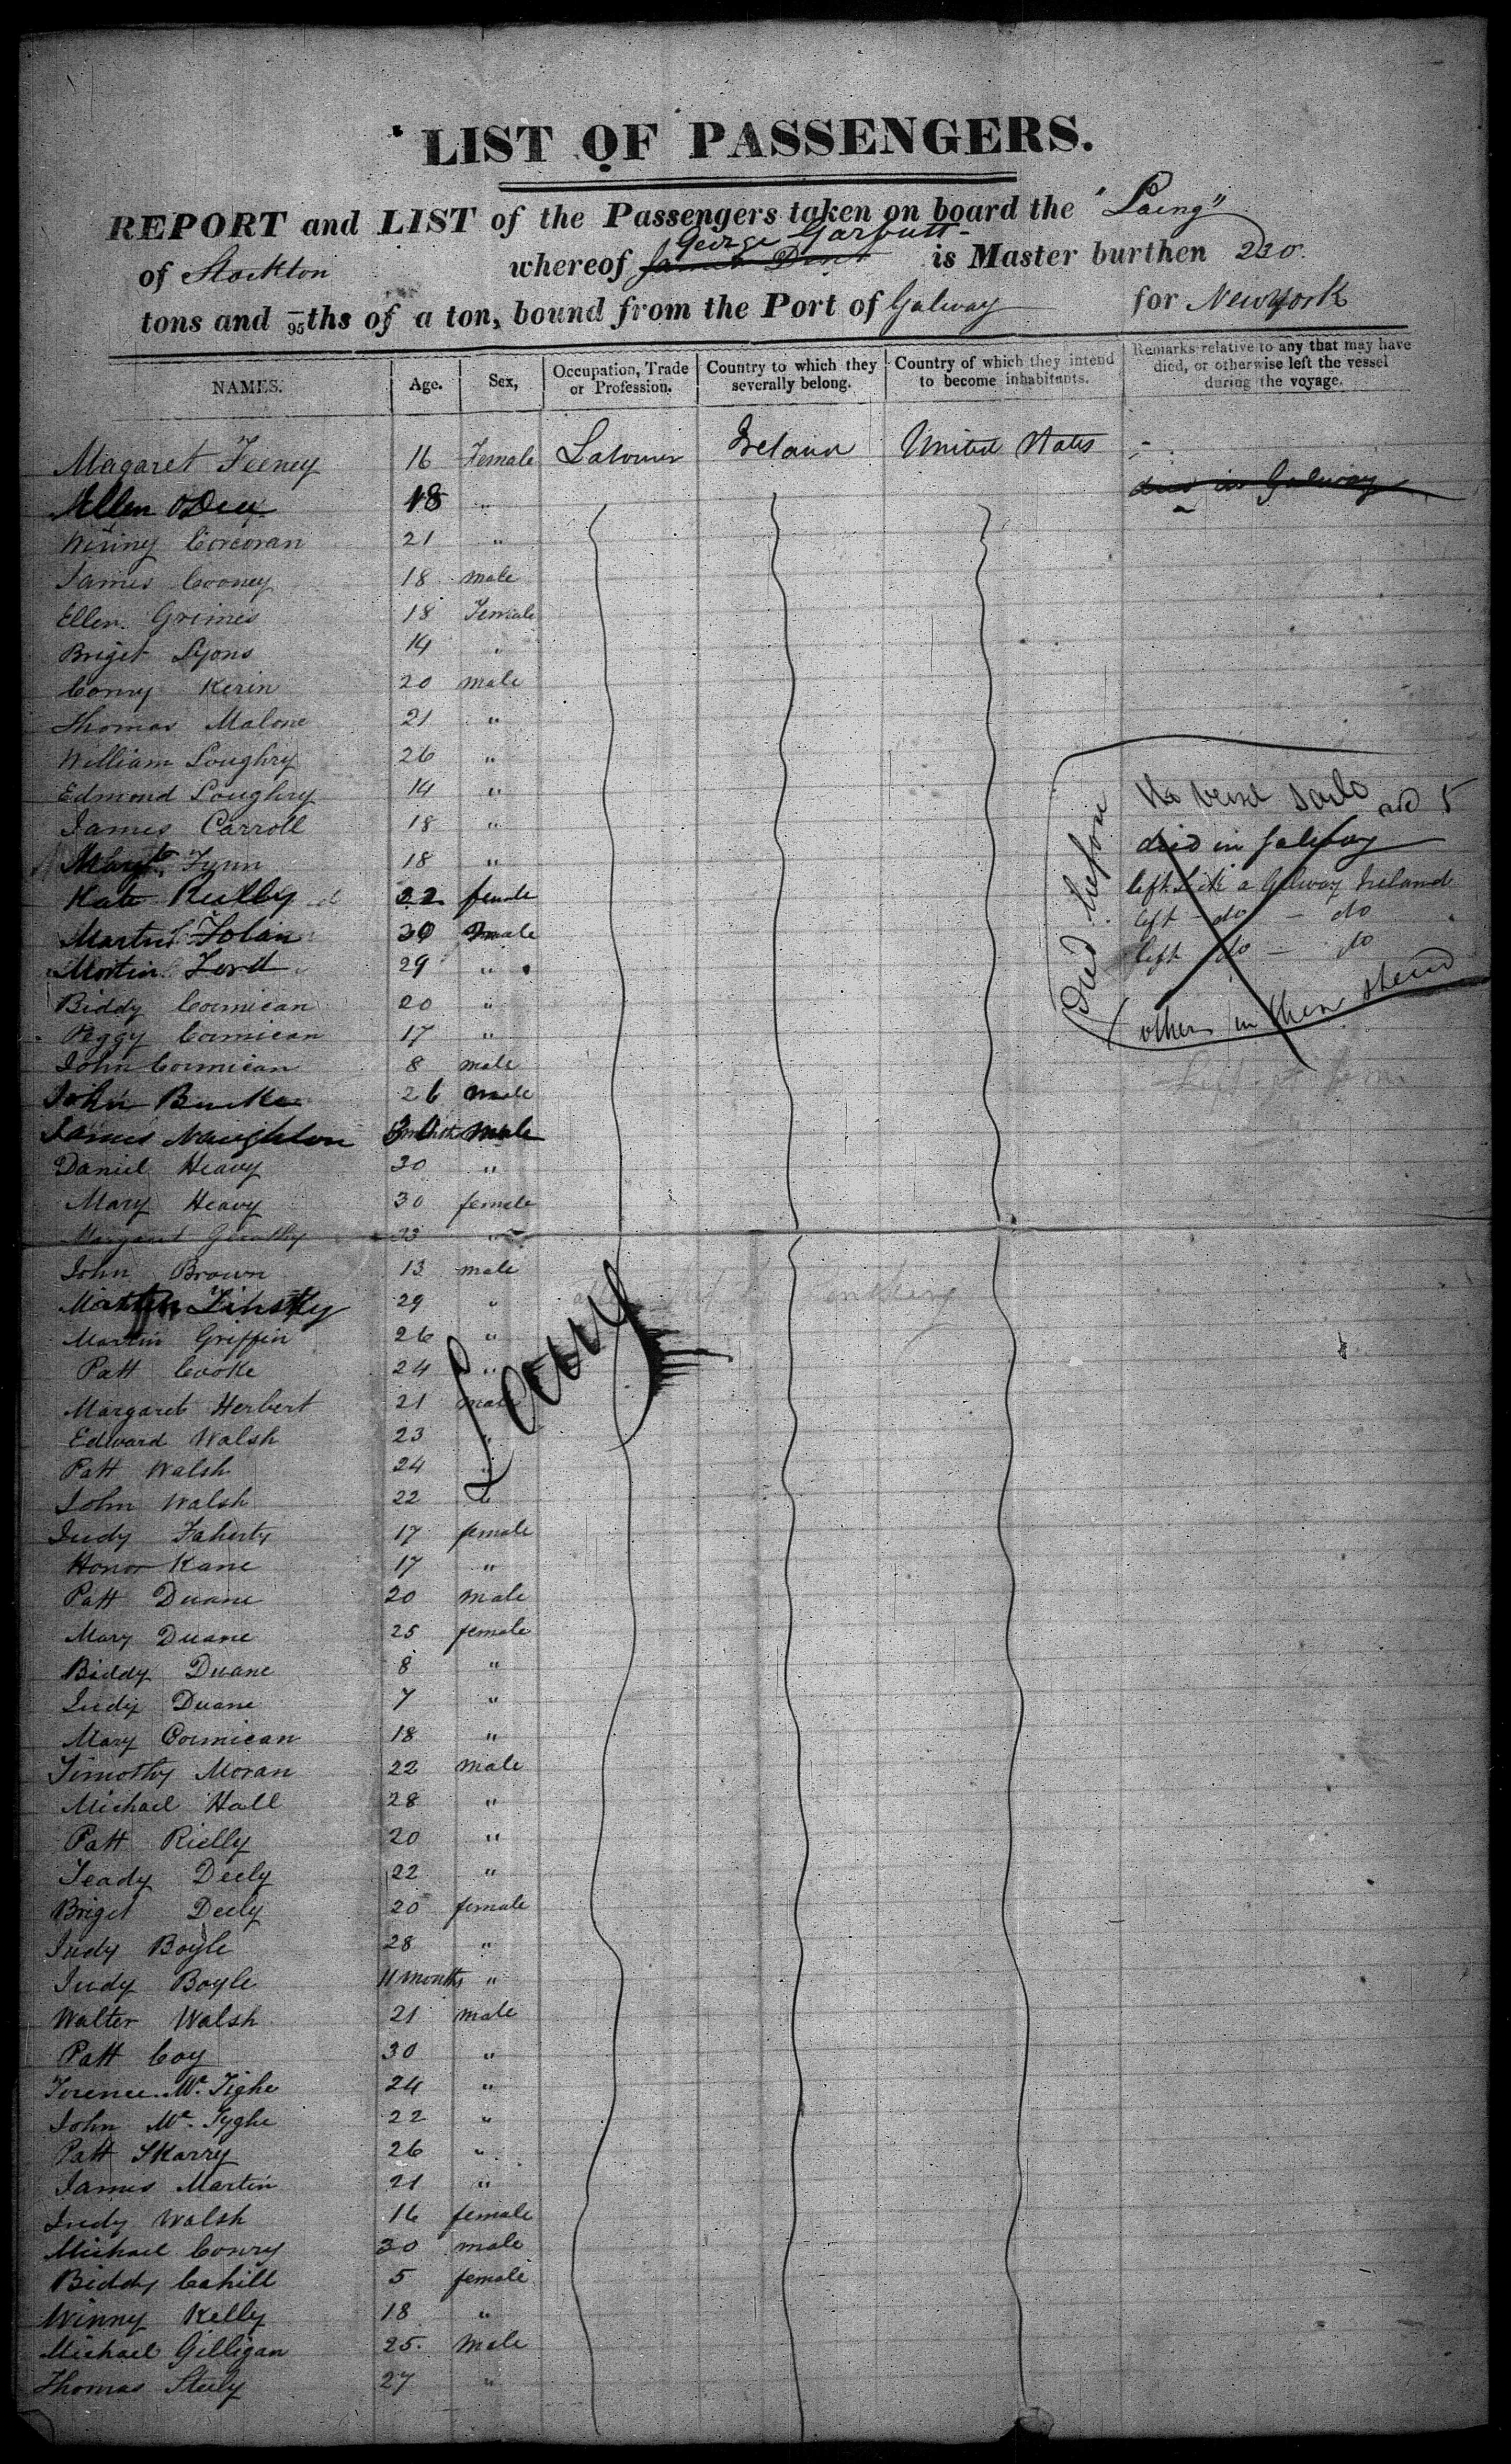 LIST OF PASSENGERS.
REPORT and LIST of the Passengers taken on board the "Laing"
George Garbutt
of Stockton whereof James Dent is Master burthen 220.
tons and —/95ths of a ton, bound from the Port of Galway for New York
NAMES. Age. Sex, Occupation, Trade or Profession. Country to which they severally belong. Country of which they intend to become inhabitants. Remarks relative to any that may have died, or otherwise left the vessel during the voyage.
Magaret Feeney 16 Female Labourer Ireland United States
Ellen ODea 18 " died in Galway
Winny Corcoran 21 "
James Cooney 18 male
Ellen Grimes 18 Female
Briget Lyons 14 "
Conny Kerin 20 male
Thomas Malone 21 "
William Loughry 26 "
Edmond Loughry 14 " the vessel and 5
James Carroll 18 " died in Galway
Fynn 18 " left Galway Ireland
Kate Reilly 22 female left - do - do
Martin Tolan male left do - do
Martin Ford 29 " died before
Biddy Cormican 20 " others in their stead
Peggy Cormican 17 "
John Cormican 8 male
John Burke 26 male
James Naughton male
Daniel Heavy 30 "
Mary Heavy 30 female
Margaret 23 "
John Brown 13 male
Martin 29 "
Martin Griffin 26 "
Patt Cooke 24 "
Laing
Margaret Herbert 21 male
Edward Walsh 23 "
Patt Walsh 24 "
John Walsh 22 "
Judy Faherty 17 female
Honor Kane 17 "
Patt Duane 20 male
Mary Duane 25 female
Biddy Duane 8 "
Judy Duane 7 "
Mary Cormican 18 "
Timothy Moran 22 male
Michael Hall 28 "
Patt Rielly 20 "
Teady Deely 22 "
Briget Deely 20 female
Judy Boyle 28 "
Judy Boyle 11 months "
Walter Walsh 21 male
Patt Coy 30 "
Terence Mc. Tighe 24 "
John Mc. Tyghe 22 "
Patt Skarry 26 "
James Martin 21 "
Judy Walsh 16 female
Michael Conry 30 male
Biddy Cahill 5 female
Winny Kelly 18 "
Michael Gilligan 25. male
Thomas Steely 27 "